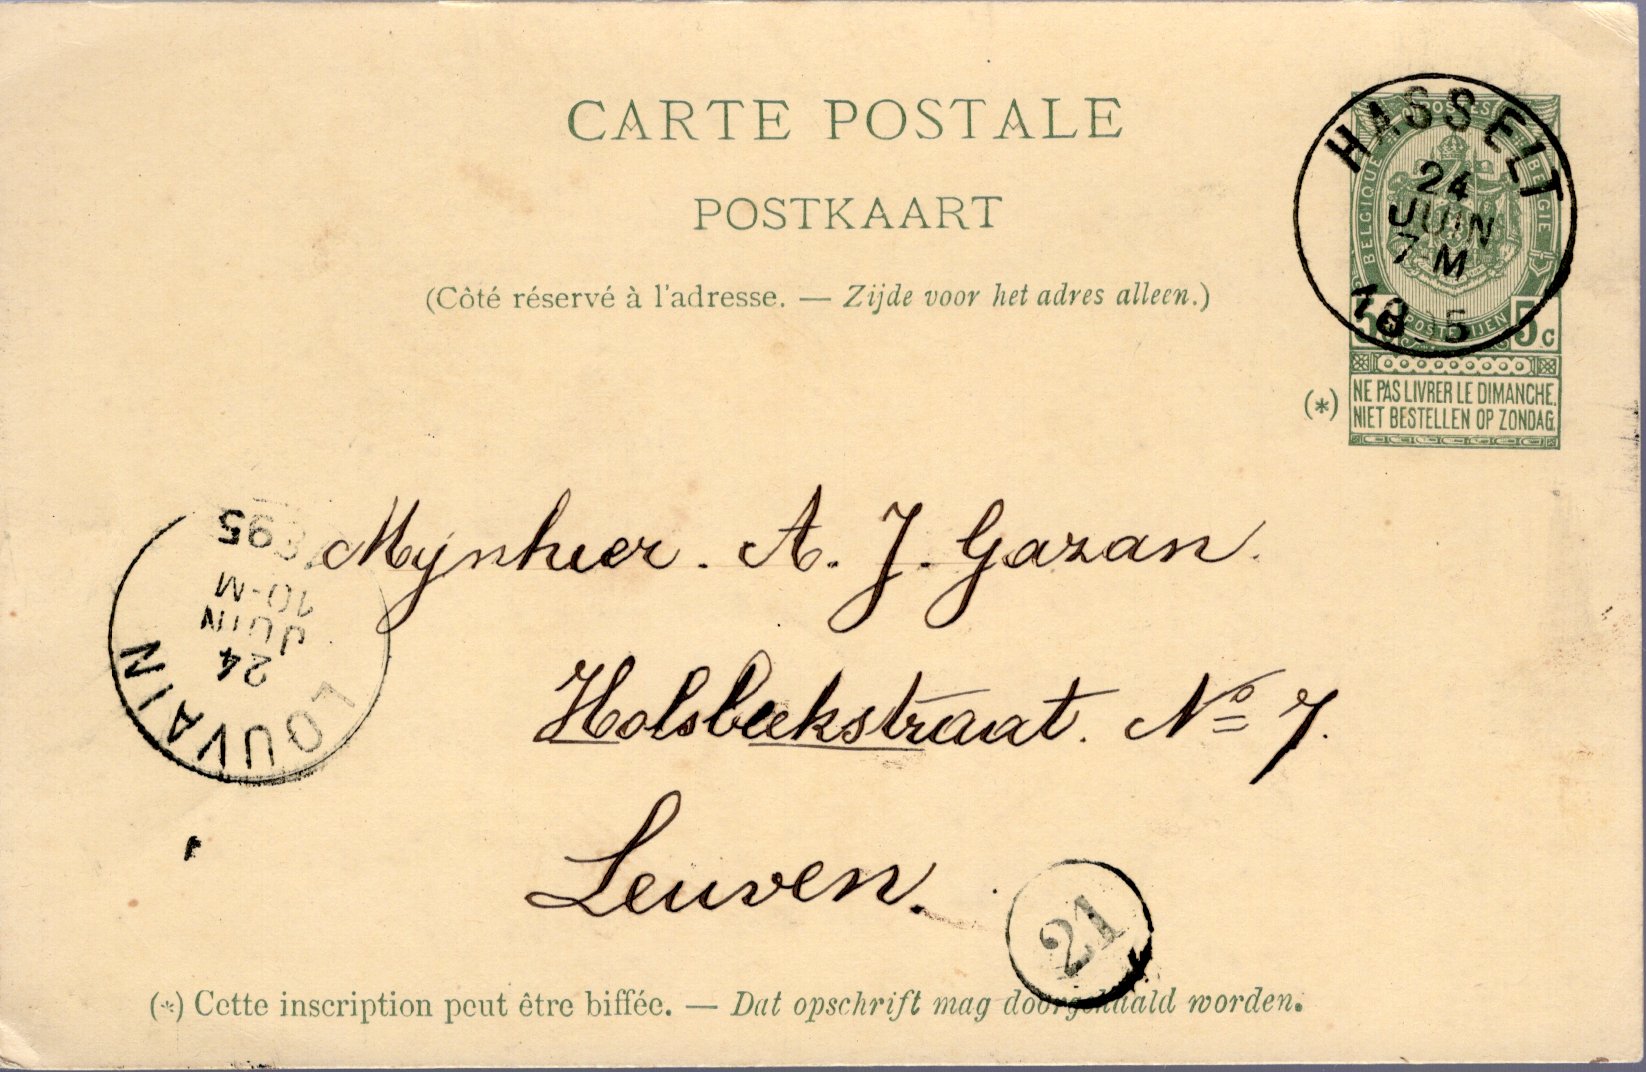 CARTE POSTALE
POSTKAART
(Côté réservé à l'adresse. — Zijde voor het adres alleen.)
HASSELT
24
JUIN
7-M
POSTES
BELGIQUE
BELGIE
5c
(*)
NE PAS LIVRER LE DIMANCHE.
NIET BESTELLEN OP ZONDAG.
Mynheer. A. J. Gazan.
Holsbeekstraat. No 7.
Leuven.
LOUVAIN
24
JUIN
10-M
95
21
(*) Cette inscription peut être biffée. — Dat opschrift mag doorgehaald worden.